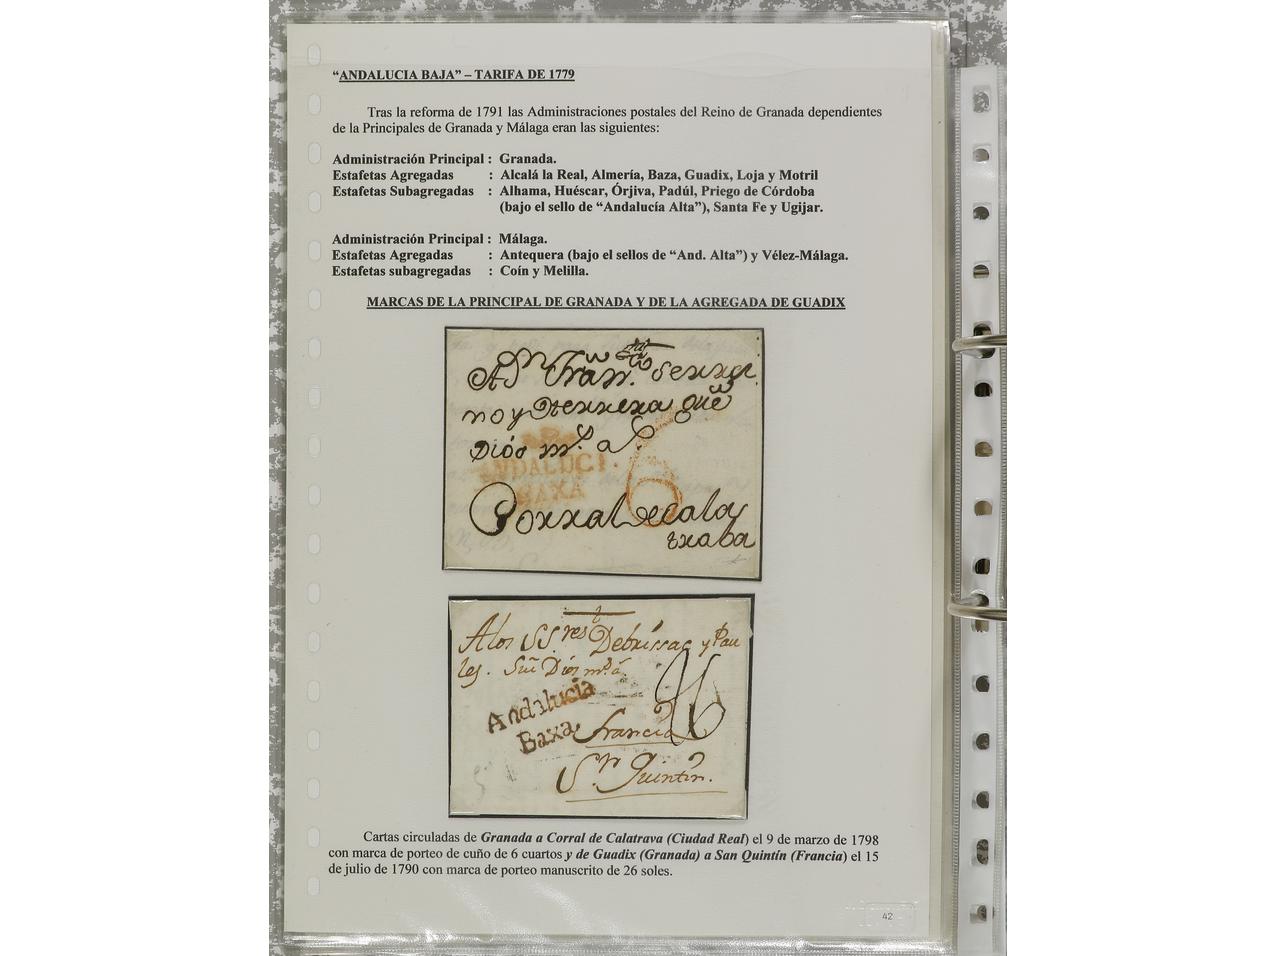 “ANDALUCIA BAJA” – TARIFA DE 1779
Tras la reforma de 1791 las Administraciones postales del Reino de Granada dependientes
de la Principales de Granada y Málaga eran las siguientes:
Administración Principal : Granada.
Estafetas Agregadas : Alcalá la Real, Almería, Baza, Guadix, Loja y Motril
Estafetas Subagregadas : Alhama, Huéscar, Órjiva, Padúl, Priego de Córdoba
(bajo el sello de “Andalucía Alta”), Santa Fe y Ugijar.
Administración Principal : Málaga.
Estafetas Agregadas : Antequera (bajo el sellos de “And. Alta”) y Vélez-Málaga.
Estafetas subagregadas : Coín y Melilla.
MARCAS DE LA PRINCIPAL DE GRANADA Y DE LA AGREGADA DE GUADIX
A Dn Fran.co Serra
no y Herrera que
Dios m.s a.s
ANDALUCI.
BAXA
6
Corral de cala
traba
A los SS.res Debrissac y Pau
les. Dios
Andalucia
Baxa
26
Francia
Sn Quintin.
Cartas circuladas de Granada a Corral de Calatrava (Ciudad Real) el 9 de marzo de 1798
con marca de porteo de cuño de 6 cuartos y de Guadix (Granada) a San Quintín (Francia) el 15
de julio de 1790 con marca de porteo manuscrito de 26 soles.
42